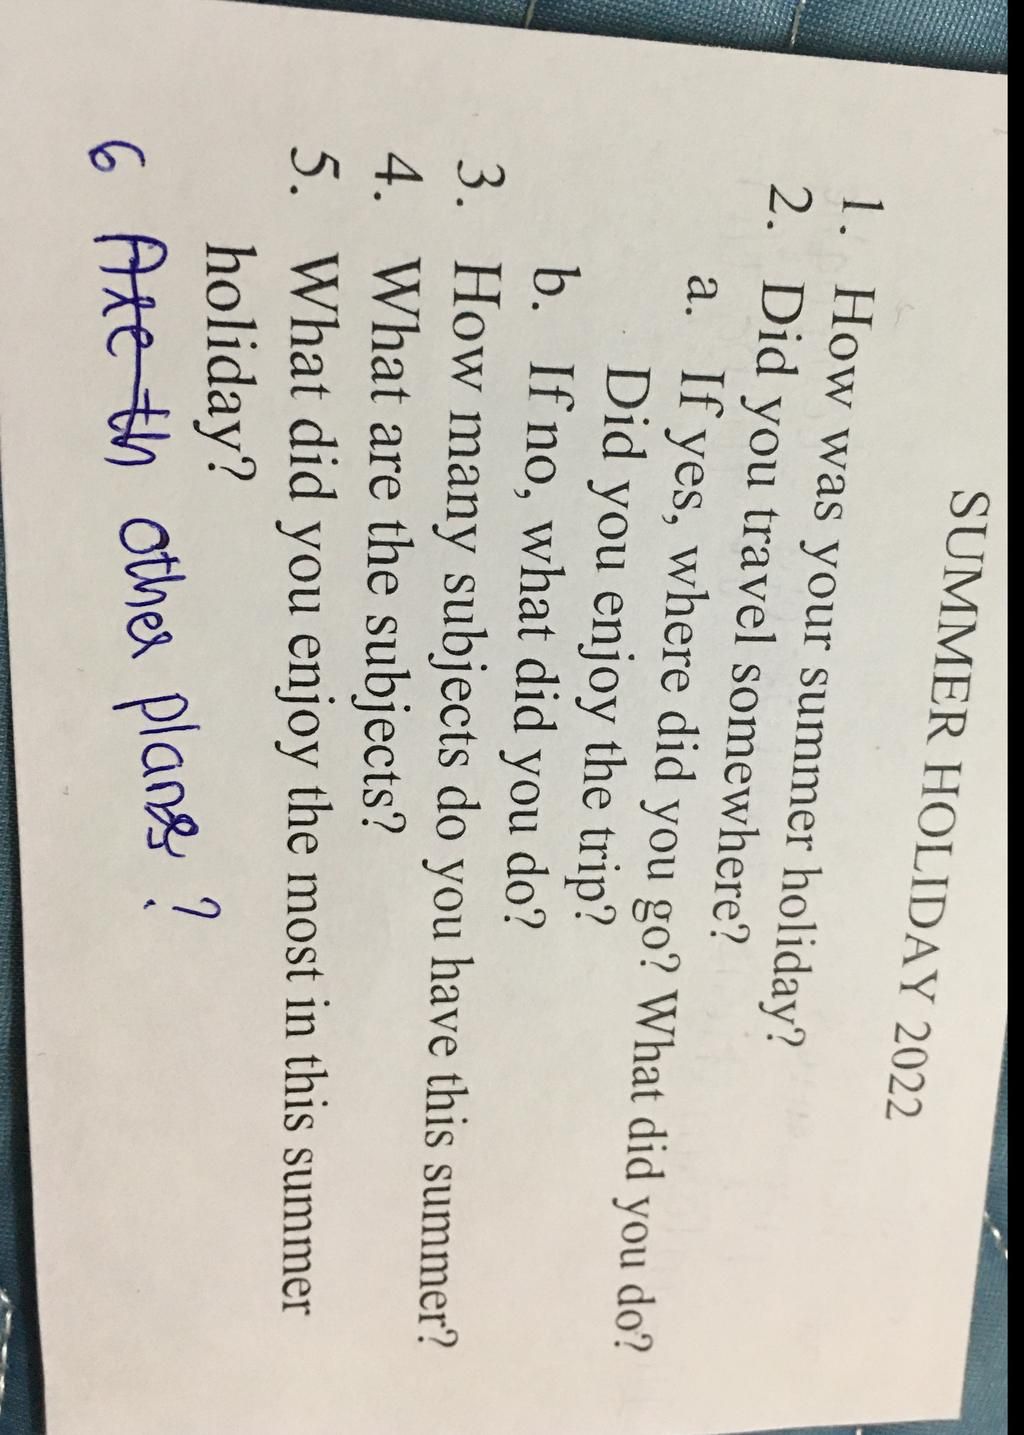 SUMMER HOLIDAY 2022
1. How was your summer holiday?
2. Did you travel somewhere?
a. If yes, where did you go? What did you do?
Did you enjoy the trip?
b. If no, what did you do?
3. How many subjects do you have this summer?
4. What are the subjects?
5. What did you enjoy the most in this summer
holiday?
6 Are th other plans?